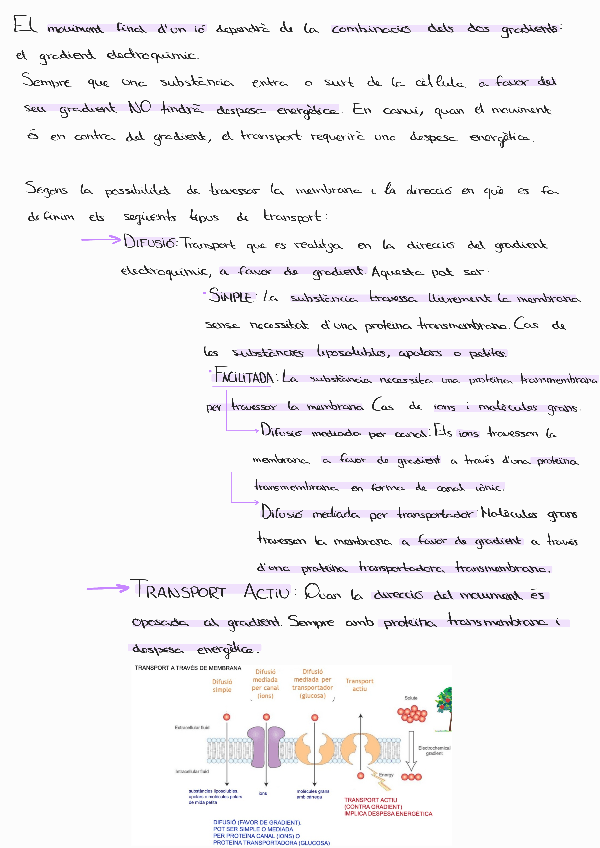 El moviment final d'un ió dependrà de la combinació dels dos gradients:
el gradient electroquímic.
Sempre que una substància entra o surt de la cèl·lula a favor del
seu gradient NO tindrà despesa energètica. En canvi, quan el moviment
és en contra del gradient, el transport requerirà una despesa energètica.
Segons la possibilitat de travessar la membrana i la direcció en què es fa
definim els següents tipus de transport:
→ DIFUSIÓ: Transport que es realitza en la direcció del gradient
electroquímic, a favor de gradient. Aquesta pot ser:
· SIMPLE: La substància travessa lliurement la membrana
sense necessitat d'una proteïna transmembrana. Cas de
les substàncies liposolubles, apolars o petites.
· FACILITADA: La substància necessita una proteïna transmembrana
per travessar la membrana. Cas de ions i molècules grans.
Difusió mediada per canal: Els ions travessen la
membrana a favor de gradient a través d'una proteïna
transmembrana en forma de canal iònic.
Difusió mediada per transportador: Molècules grans
travessen la membrana a favor de gradient a través
d'una proteïna transportadora transmembrana.
→ TRANSPORT ACTIU: Quan la direcció del moviment és
oposada al gradient. Sempre amb proteïna transmembrana i
despesa energètica.
TRANSPORT A TRAVÉS DE MEMBRANA
Difusió simple
Difusió mediada per canal (ions)
Difusió mediada per transportador (glucosa)
Transport actiu
Solute
Extracellular fluid
Electrochemical gradient
Intracellular fluid
Energy
substàncies liposolubles, apolars o molècules polars de mida petita
ions
molècules grans amb càrrega
TRANSPORT ACTIU
(CONTRA GRADIENT)
IMPLICA DESPESA ENERGÈTICA
DIFUSIÓ (FAVOR DE GRADIENT).
POT SER SIMPLE O MEDIADA
PER PROTEÏNA CANAL (IONS) O
PROTEÏNA TRANSPORTADORA (GLUCOSA)